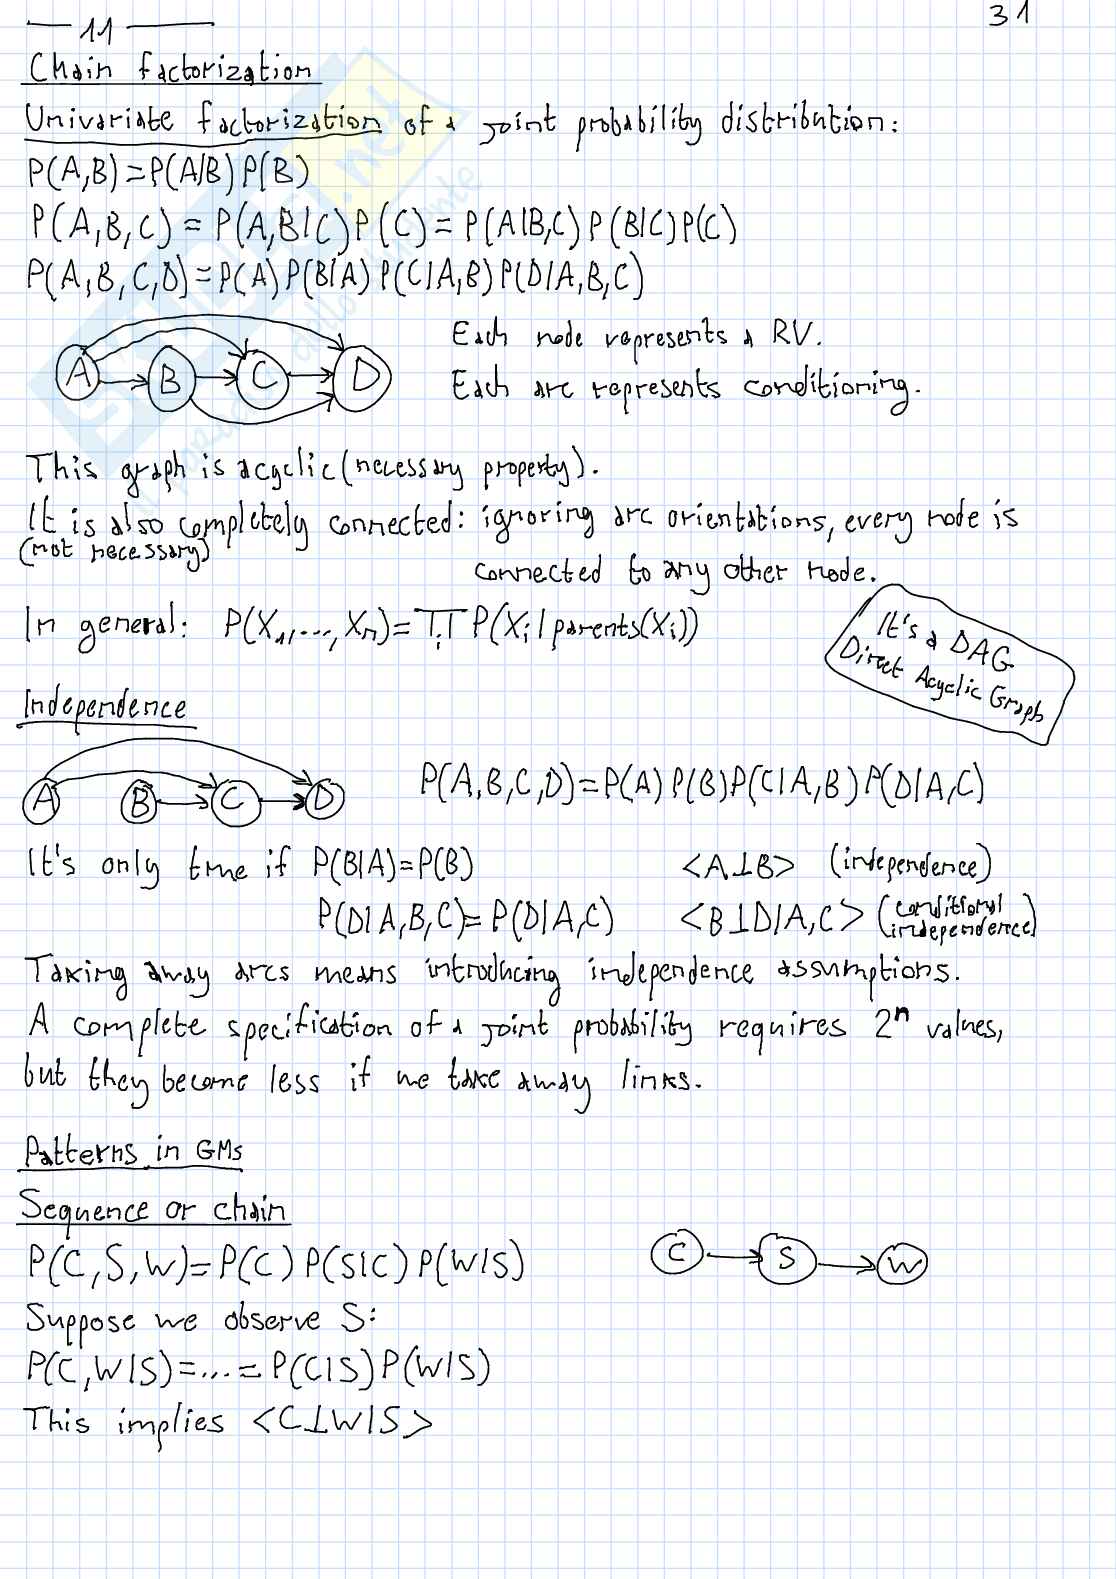 11
31
Chain factorization
Univariate factorization of a joint probability distribution:
P(A,B)=P(A|B)P(B)
P(A,B,C) = P(A,B|C)P(C) = P(A|B,C)P(B|C)P(C)
P(A,B,C,D)=P(A)P(B|A)P(C|A,B)P(D|A,B,C)
A B C D
Each node represents a RV.
Each arc represents conditioning.
This graph is acyclic (necessary property).
It is also completely connected: ignoring arc orientations, every node is
(not necessary)
connected to any other node.
In general: P(X₁,...,Xₙ)=∏ᵢ P(Xᵢ|parents(Xᵢ))
It's a DAG
Direct Acyclic Graph
Independence
A B C D
P(A,B,C,D)=P(A)P(B)P(C|A,B)P(D|A,C)
It's only true if P(B|A)=P(B) <A⊥B> (independence)
P(D|A,B,C)=P(D|A,C) <B⊥D|A,C> (conditional independence)
Taking away arcs means introducing independence assumptions.
A complete specification of a joint probability requires 2ⁿ values,
but they become less if we take away links.
Patterns in GMs
Sequence or chain
P(C,S,W)=P(C)P(S|C)P(W|S)
C S W
Suppose we observe S:
P(C,W|S)=...=P(C|S)P(W|S)
This implies <C⊥W|S>